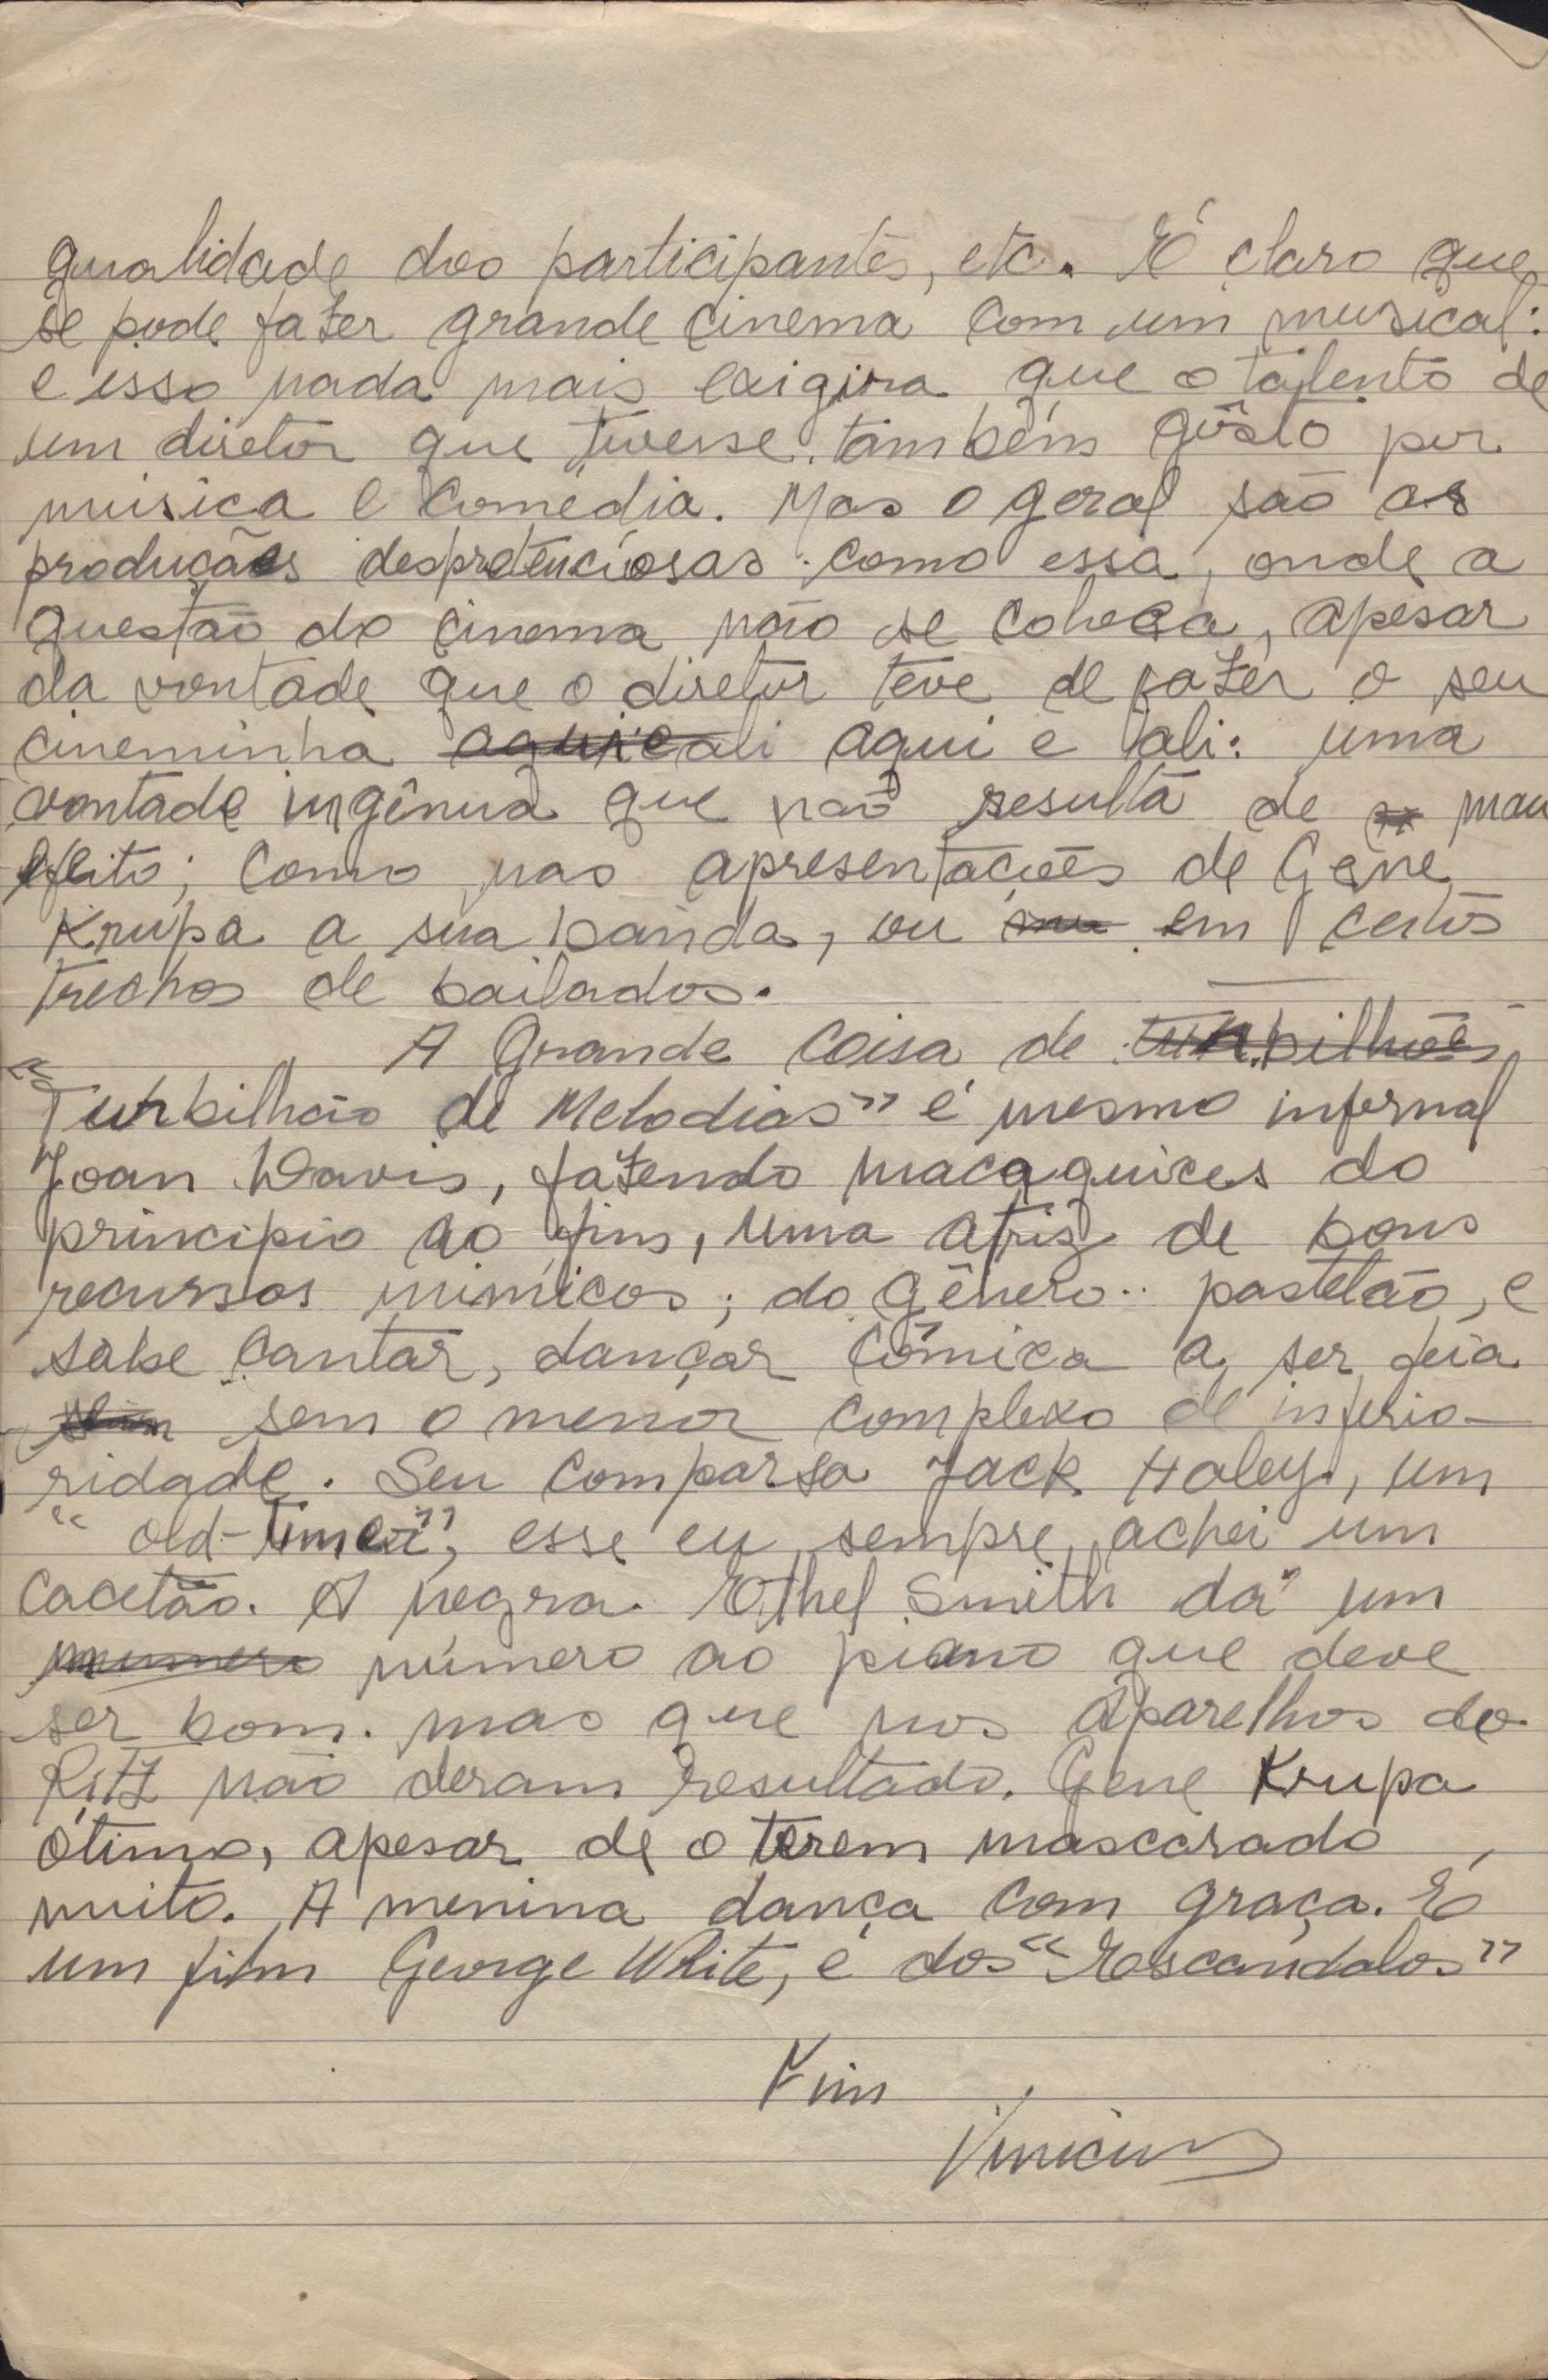 qualidade dos participantes, etc. É claro que
se pode fazer grande cinema com um musical:
e isso nada mais exigira que o talento de
um diretor que tivesse também gôsto por
música e comédia. Mas o geral são as
produções despretenciosas como essa, onde a
questão do cinema não se coloca, apesar
da vontade que o diretor teve de fazer o seu
cineminha aqui e ali aqui e ali: uma
vontade ingênua que não resulta de mau
efeito; como nas apresentações de Gene
Krupa a sua banda, ou em certos
trechos de bailados.
A Grande coisa de turbilhões
"Turbilhão de Melodias" é mesmo infernal
Joan Davis, fazendo macaquices do
principio ao fim, uma atriz de bons
recursos mímicos; do gênero pastelão, e
sabe cantar, dançar cômica a ser feia
sem o menor complexo de inferio-
ridade. Seu comparsa Jack Haley, um
"old-timer", esse eu sempre achei um
cacetão. A negra Ethel Smith dá um
numero número ao piano que deve
ser bom. mas que nos aparelhos do
Ritz não deram resultado. Gene Krupa
ótimo, apesar de o terem mascarado
muito. A menina dança com graça. É
um film George White, é dos "Escandalos"
Fim
Vinicius